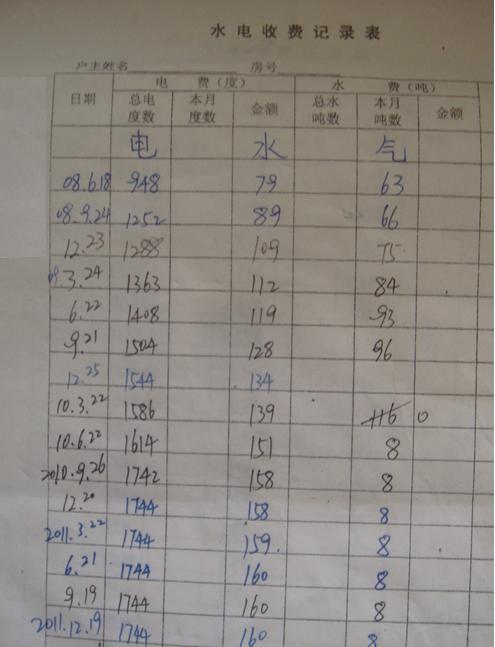 水电收费记录表
户主姓名 房号
日期 电 费(度) 水 费(吨)
总电度数 本月度数 金额 总水吨数 本月吨数 金额
电 水 气
08.6.18 948 79 63
08.9.24 1252 89 66
12.23 1288 109 75
09.3.24 1363 112 84
6.22 1408 119 93
9.21 1504 128 96
12.25 1544 134
10.3.22 1586 139 116 0
10.6.22 1614 151 8
2010.9.26 1742 158 8
12.20 1744 158 8
2011.3.22 1744 159. 8
6.21 1744 160 8
9.19 1744 160 8
2011.12.19 1744 160 8